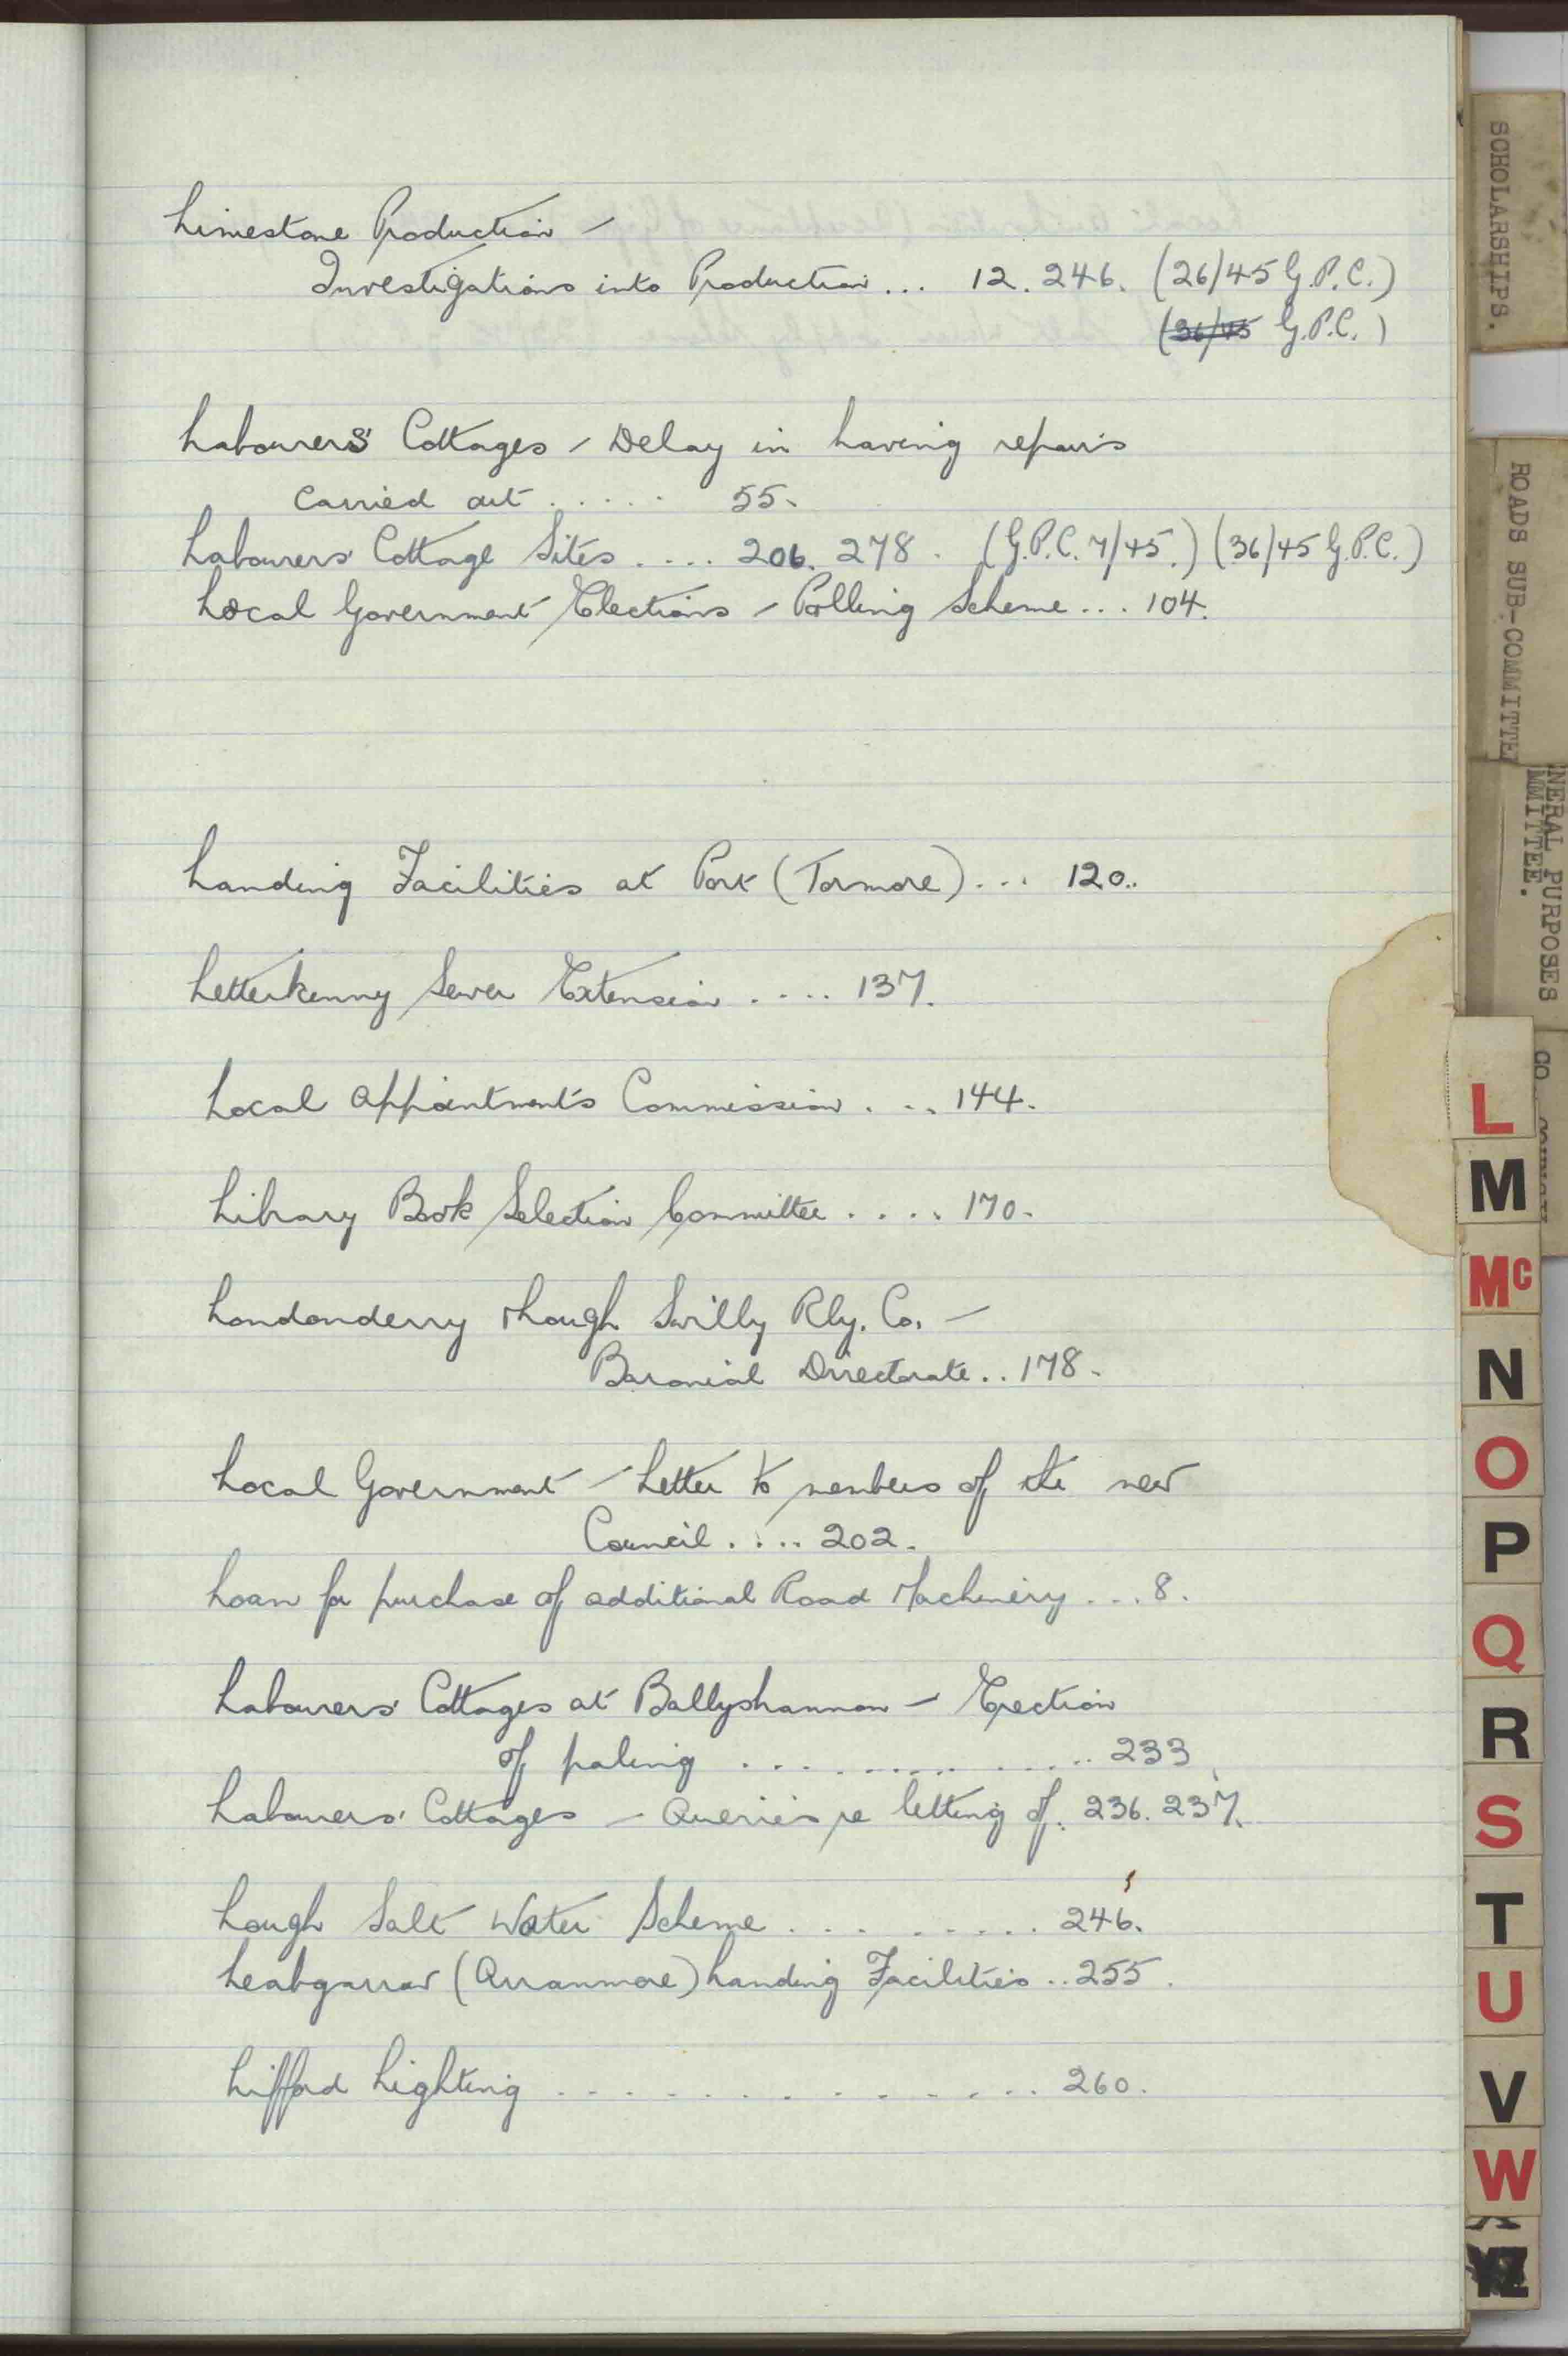 Limestone Production –
Investigations into Production... 12. 246. (26/45 G.P.C.)
(36/45 G.P.C.)
Labourers' Cottages – Delay in having repairs
carried out ..... 55.
Labourers' Cottage Sites .... 206. 278. (G.P.C. 7/45.) (36/45 G.P.C.)
Local Government Elections – Polling Scheme... 104.
Landing Facilities at Port (Tormore)... 120..
Letterkenny Sewer Extension .... 137.
Local Appointments Commission .... 144.
Library Book Selection Committee .... 170.
Londonderry & Lough Swilly Rly. Co. –
Baronial Directorate.. 178.
Local Government – Letter to members of the new
Council .... 202.
Loan for purchase of additional Road Machinery ... 8.
Labourers' Cottages at Ballyshannon – Erection
of paling ............ 233.
Labourers' Cottages – Queries re letting of. 236. 237.
Lough Salt Water Scheme .......... 246.
Leabgarrow (Arranmore) Landing Facilities .. 255.
Lifford Lighting ............... 260.
SCHOLARSHIPS.
ROADS SUB-COMMITTE
NERAL PURPOSES
MMITTEE.
CO
L
M
Mc
N
O
P
Q
R
S
T
U
V
W